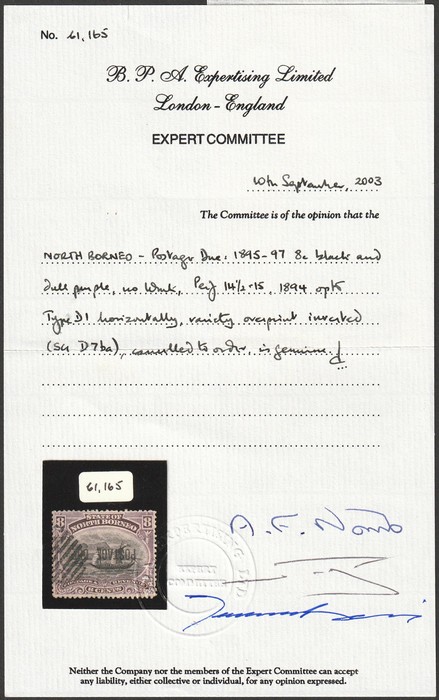 No. 61,165
B. P. A. Expertising Limited
London - England
EXPERT COMMITTEE
10th September, 2003
The Committee is of the opinion that the
NORTH BORNEO - Postage Due: 1895-97 8c black and
dull purple, no Wmk, Perf 14½-15, 1894 opt
Type D1 horizontally, variety overprint inverted
(SG D7ba), cancelled to order, is genuine.
61,165
STATE OF
NORTH BORNEO
8 8
POSTAGE DUE
8 CENTS
Neither the Company nor the members of the Expert Committee can accept
any liability, either collective or individual, for any opinion expressed.